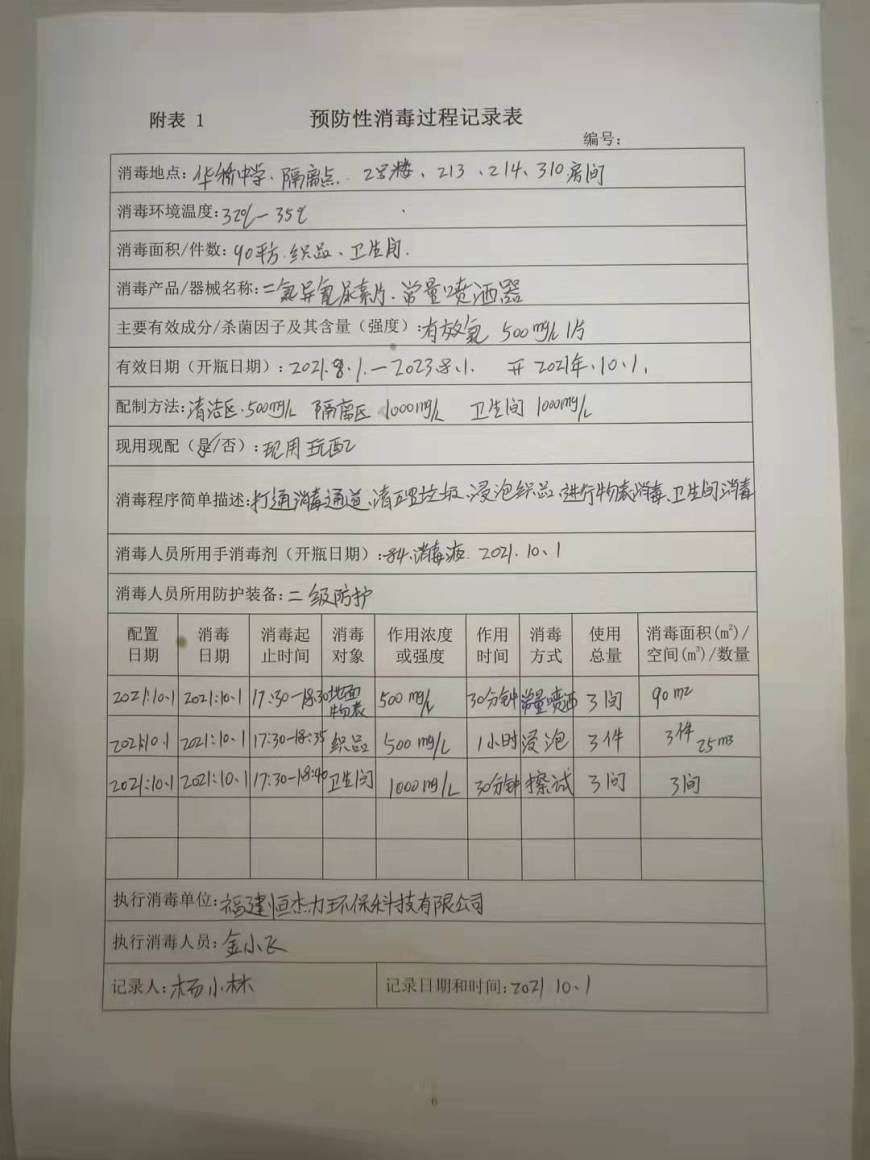 附表 1
预防性消毒过程记录表
编号：
消毒地点：华侨中学、隔离点. 2号楼、213、214、310房间
消毒环境温度：32℃-35℃
消毒面积/件数：90平方.织品、卫生间.
消毒产品/器械名称：二氯异氰尿素片.常量喷洒器
主要有效成分/杀菌因子及其含量（强度）：有效氯 500mg/L 1片
有效日期（开瓶日期）：2021.8.1.-2023.8.1. 开 2021年.10.1.
配制方法：清洁区.500mg/L 隔离区 1000mg/L 卫生间 1000mg/L
现用现配（是/否）：现用现配
消毒程序简单描述：打通消毒通道、清理垃圾、浸泡织品、进行物表消毒、卫生间消毒
消毒人员所用手消毒剂（开瓶日期）：84.消毒液. 2021.10、1
消毒人员所用防护装备：二级防护
配置日期 消毒日期 消毒起止时间 消毒对象 作用浓度或强度 作用时间 消毒方式 使用总量 消毒面积(m²)/空间(m³)/数量
2021.10.1 2021.10.1 17:30-18:30 地面物表 500mg/L 30分钟 常量喷洒 3间 90m2
2021.10.1 2021.10.1 17:30-18:35 织品 500mg/L 1小时 浸泡 3件 3件 25m3
2021.10.1 2021.10.1 17:30-18:40 卫生间 1000mg/L 30分钟 擦试 3间 3间
执行消毒单位：福建恒杰力环保科技有限公司
执行消毒人员：金小飞
记录人：杨小林 记录日期和时间：2021 10、1
6